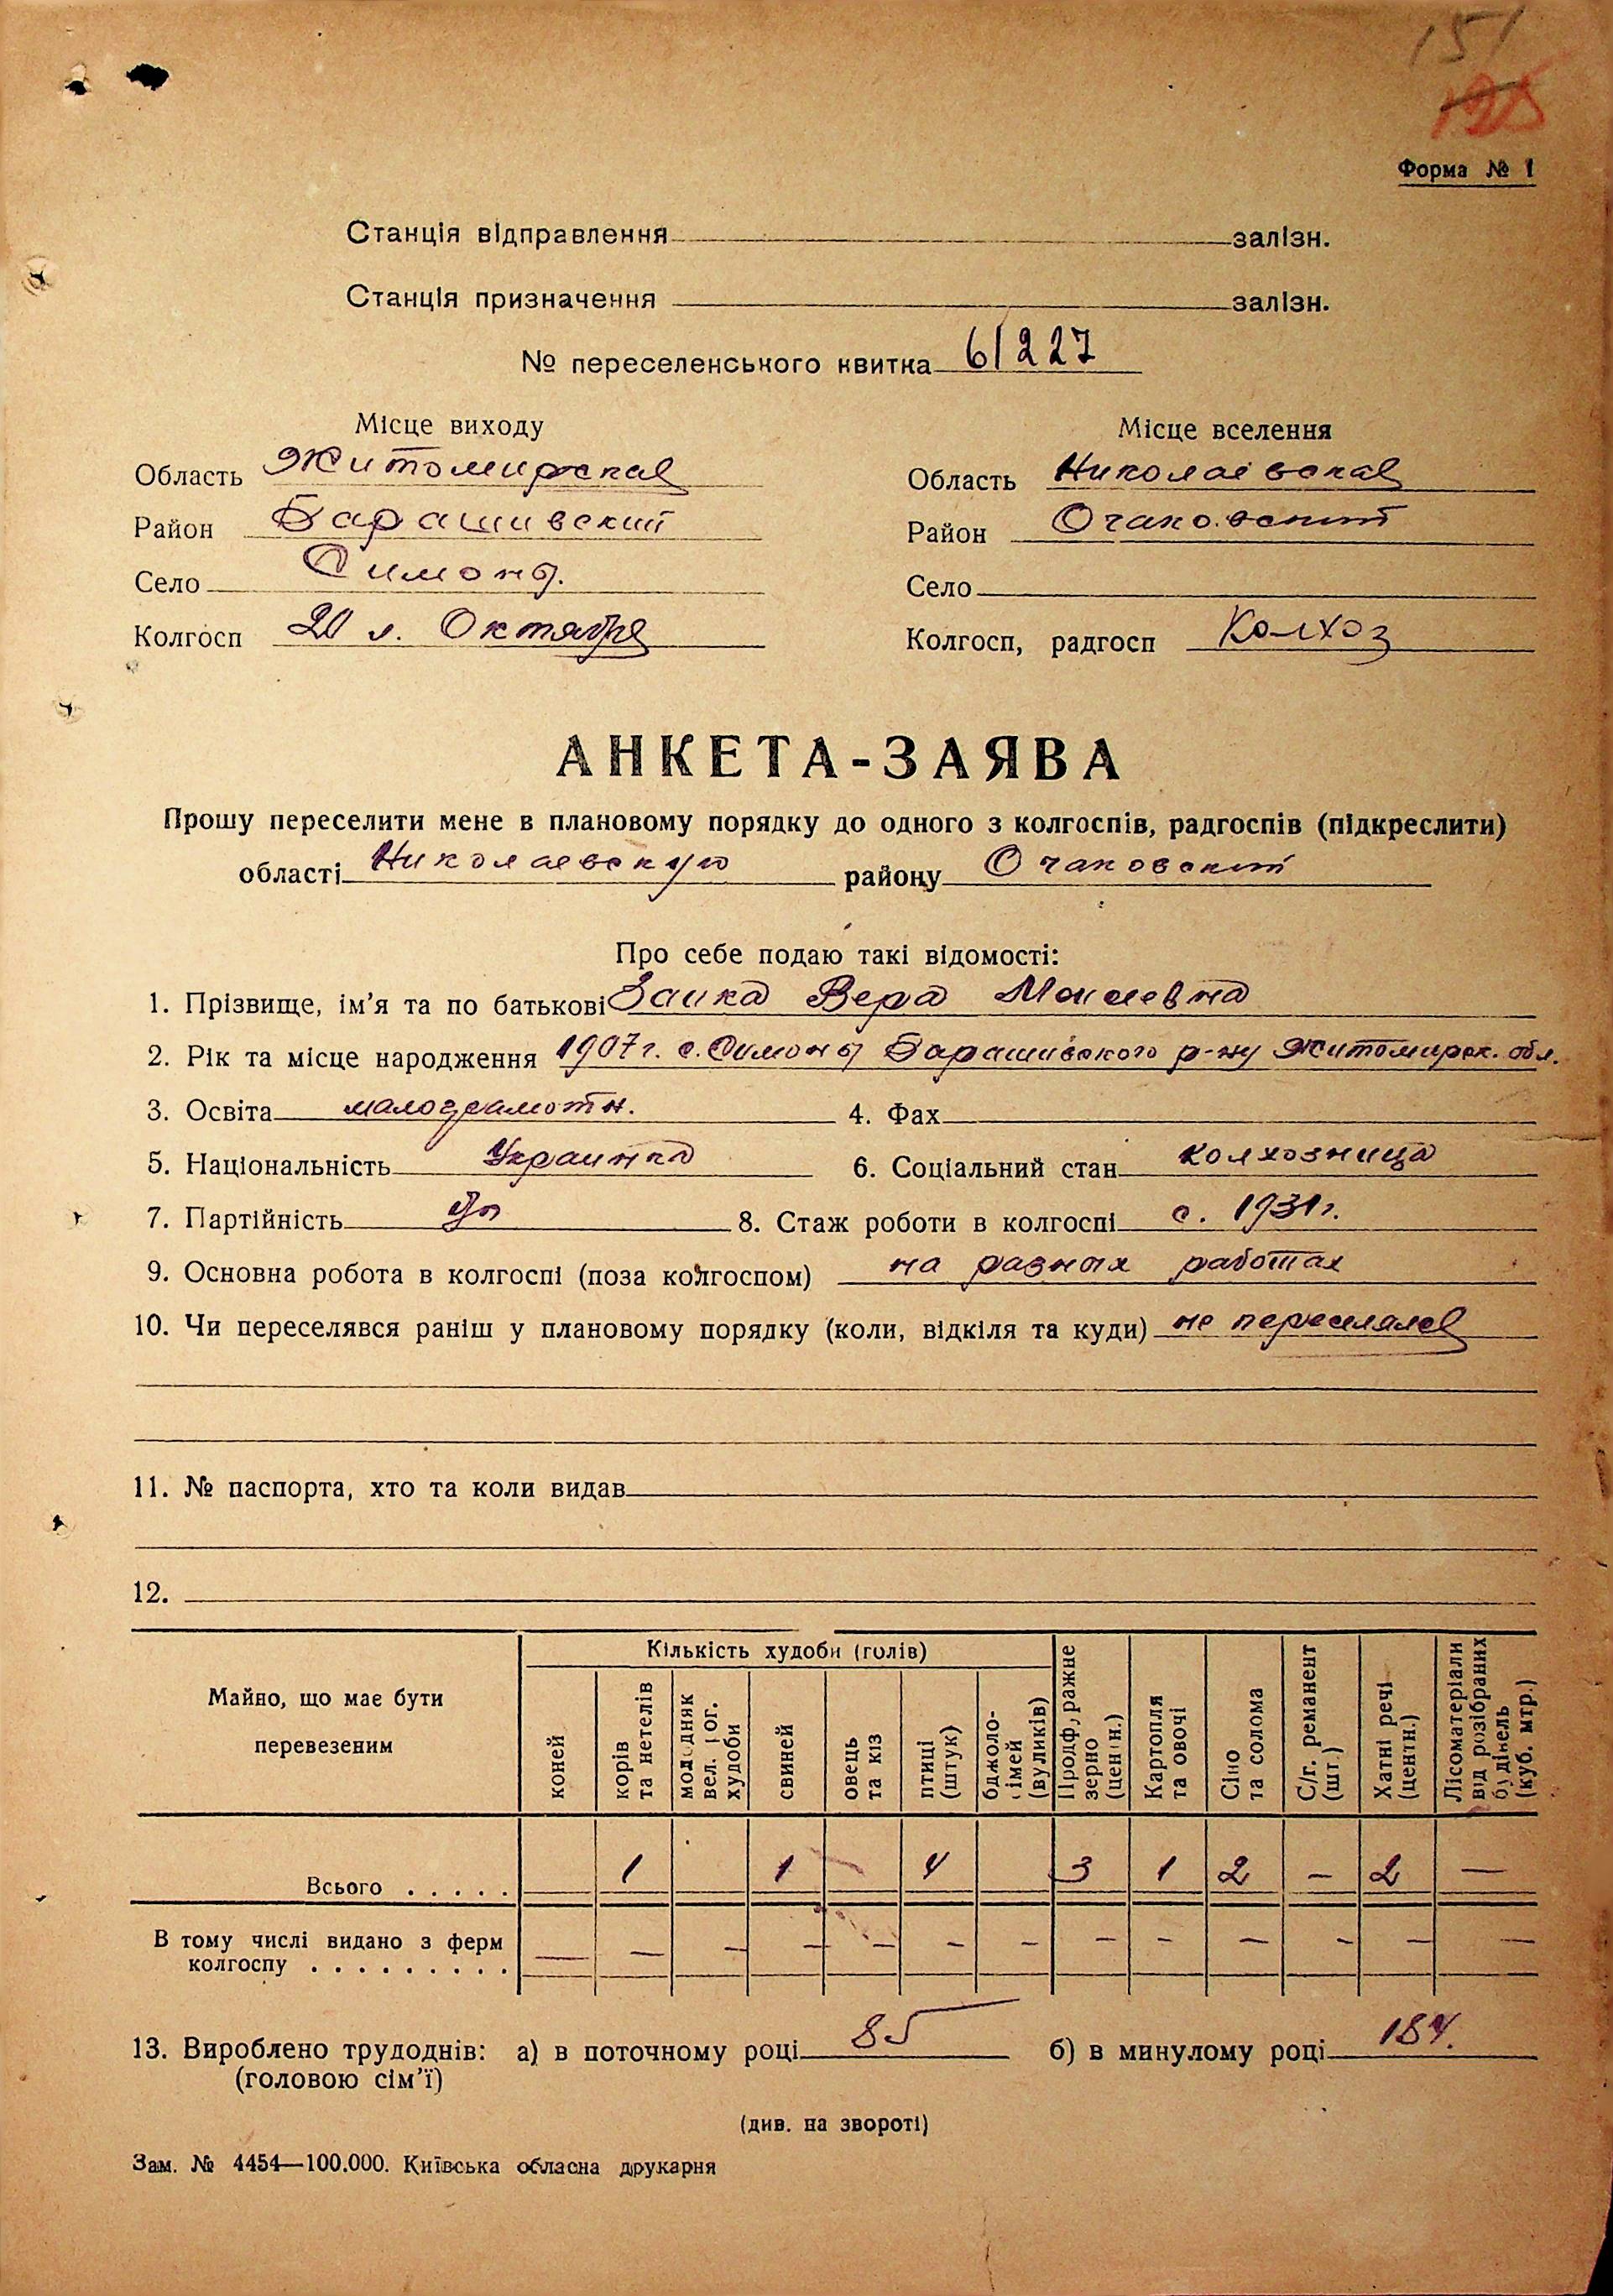 151
125
Форма № 1
Станція відправлення залізн.
Станція призначення залізн.
№ переселенського квитка 6/227
Місце виходу
Область Житомирская
Район Барашивский
Село Симоны.
Колгосп 20 л. Октября
Місце вселення
Область Николаевская
Район Очаковский
Село
Колгосп, радгосп Колхоз
АНКЕТА-ЗАЯВА
Прошу переселити мене в плановому порядку до одного з колгоспів, радгоспів (підкреслити)
області Николаевскую району Очаковский
Про себе подаю такі відомості:
1. Прізвище, ім'я та по батькові Заика Вера
2. Рік та місце народження 1907г. с. Симоны Барашивского р-ну Житомирск. обл.
3. Освіта малограмотн. 4. Фах
5. Національність Украинка 6. Соціальний стан колхозница
7. Партійність 8. Стаж роботи в колгоспі с. 1931г.
9. Основна робота в колгоспі (поза колгоспом) на разных работах
10. Чи переселявся раніш у плановому порядку (коли, відкіля та куди) не переселялся
11. № паспорта, хто та коли видав
12.
Майно, що має бути перевезеним
Кількість худоби (голів)
коней
корів та нетелів
молодняк вел. рог. худоби
свиней
овець та кіз
птиці (штук)
бджоло-сімей (вуликів)
Продф,ражне зерно (центн.)
Картопля та овочі
Сіно та солома
С/г. реманент (шт.)
Хатні речі (центн.)
Лісоматеріали від розібраних будівель (куб. мтр.)
Всього . . . . . 1 1 — 4 3 1 2 — 2 —
В тому числі видано з ферм
колгоспу . . . . . . . . . — — — — — — — — — — — — —
13. Вироблено трудоднів: а) в поточному році 85 б) в минулому році 184.
(головою сім'ї)
(див. на звороті)
Зам. № 4454—100.000. Київська обласна друкарня